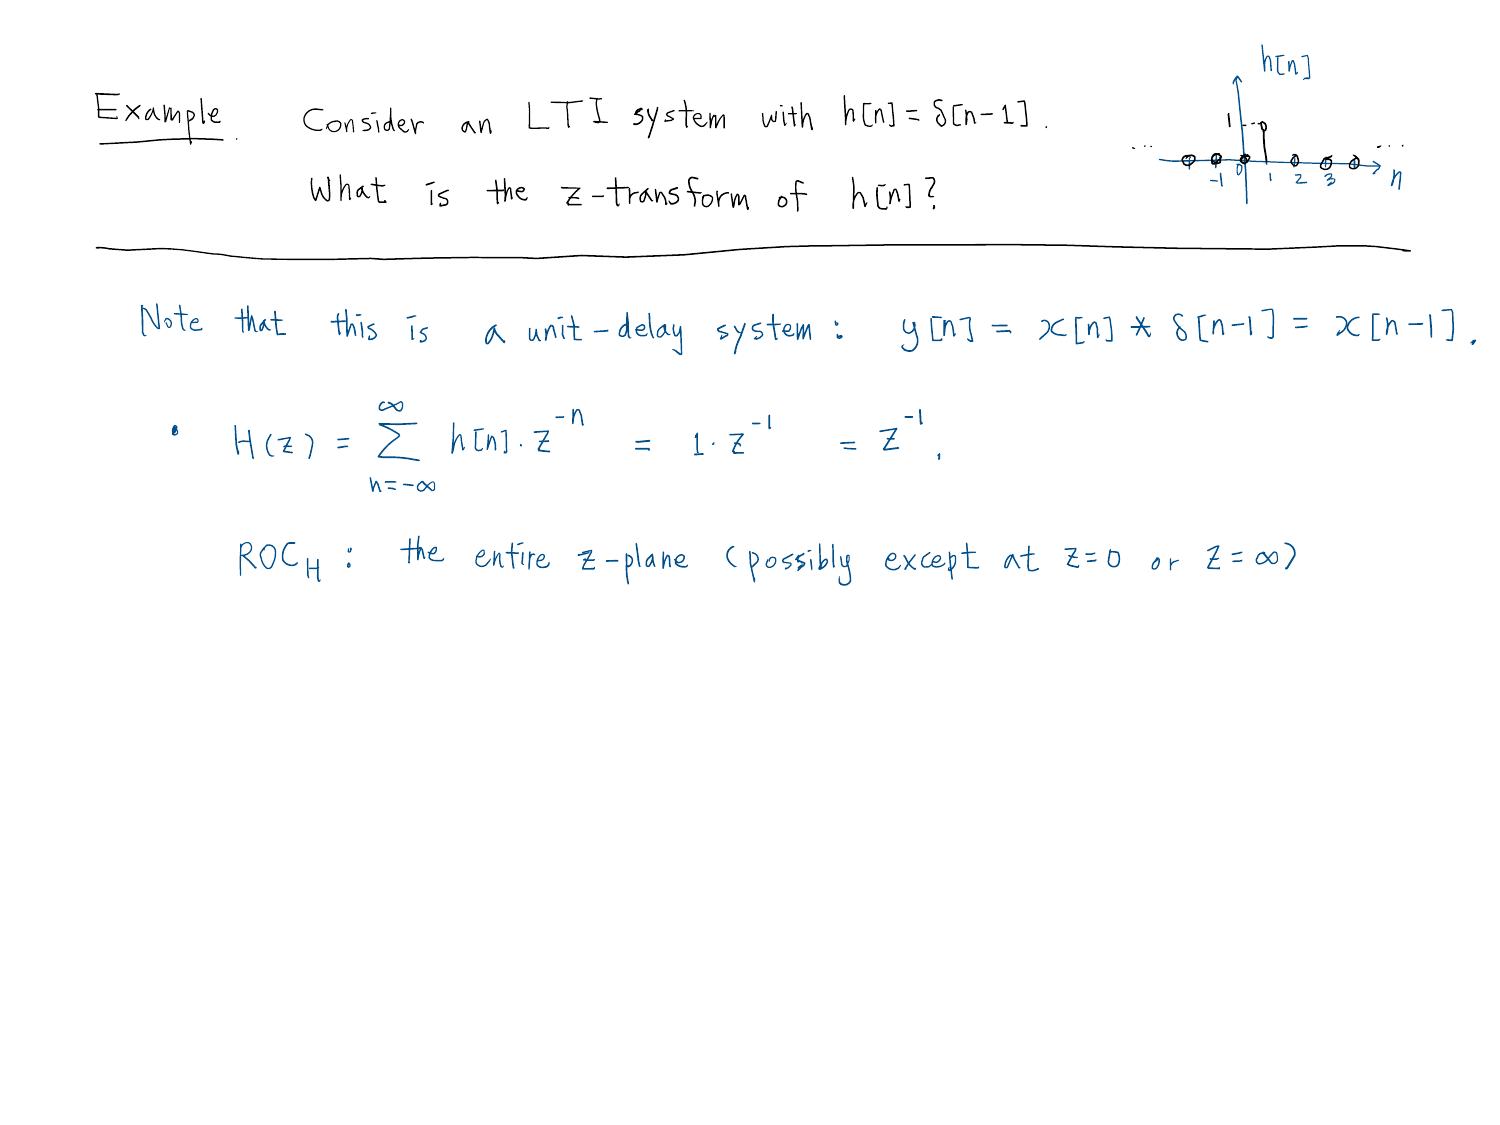 h[n]
Example. Consider an LTI system with h[n] = δ[n-1].
1
... ...
-1 0 1 2 3 n
What is the z-transform of h[n]?
Note that this is a unit-delay system: y[n] = x[n] * δ[n-1] = x[n-1].
• H(z) = ∑_{n=-∞}^{∞} h[n]·z^{-n} = 1·z^{-1} = z^{-1}.
ROC_H : the entire z-plane (possibly except at z=0 or z=∞)